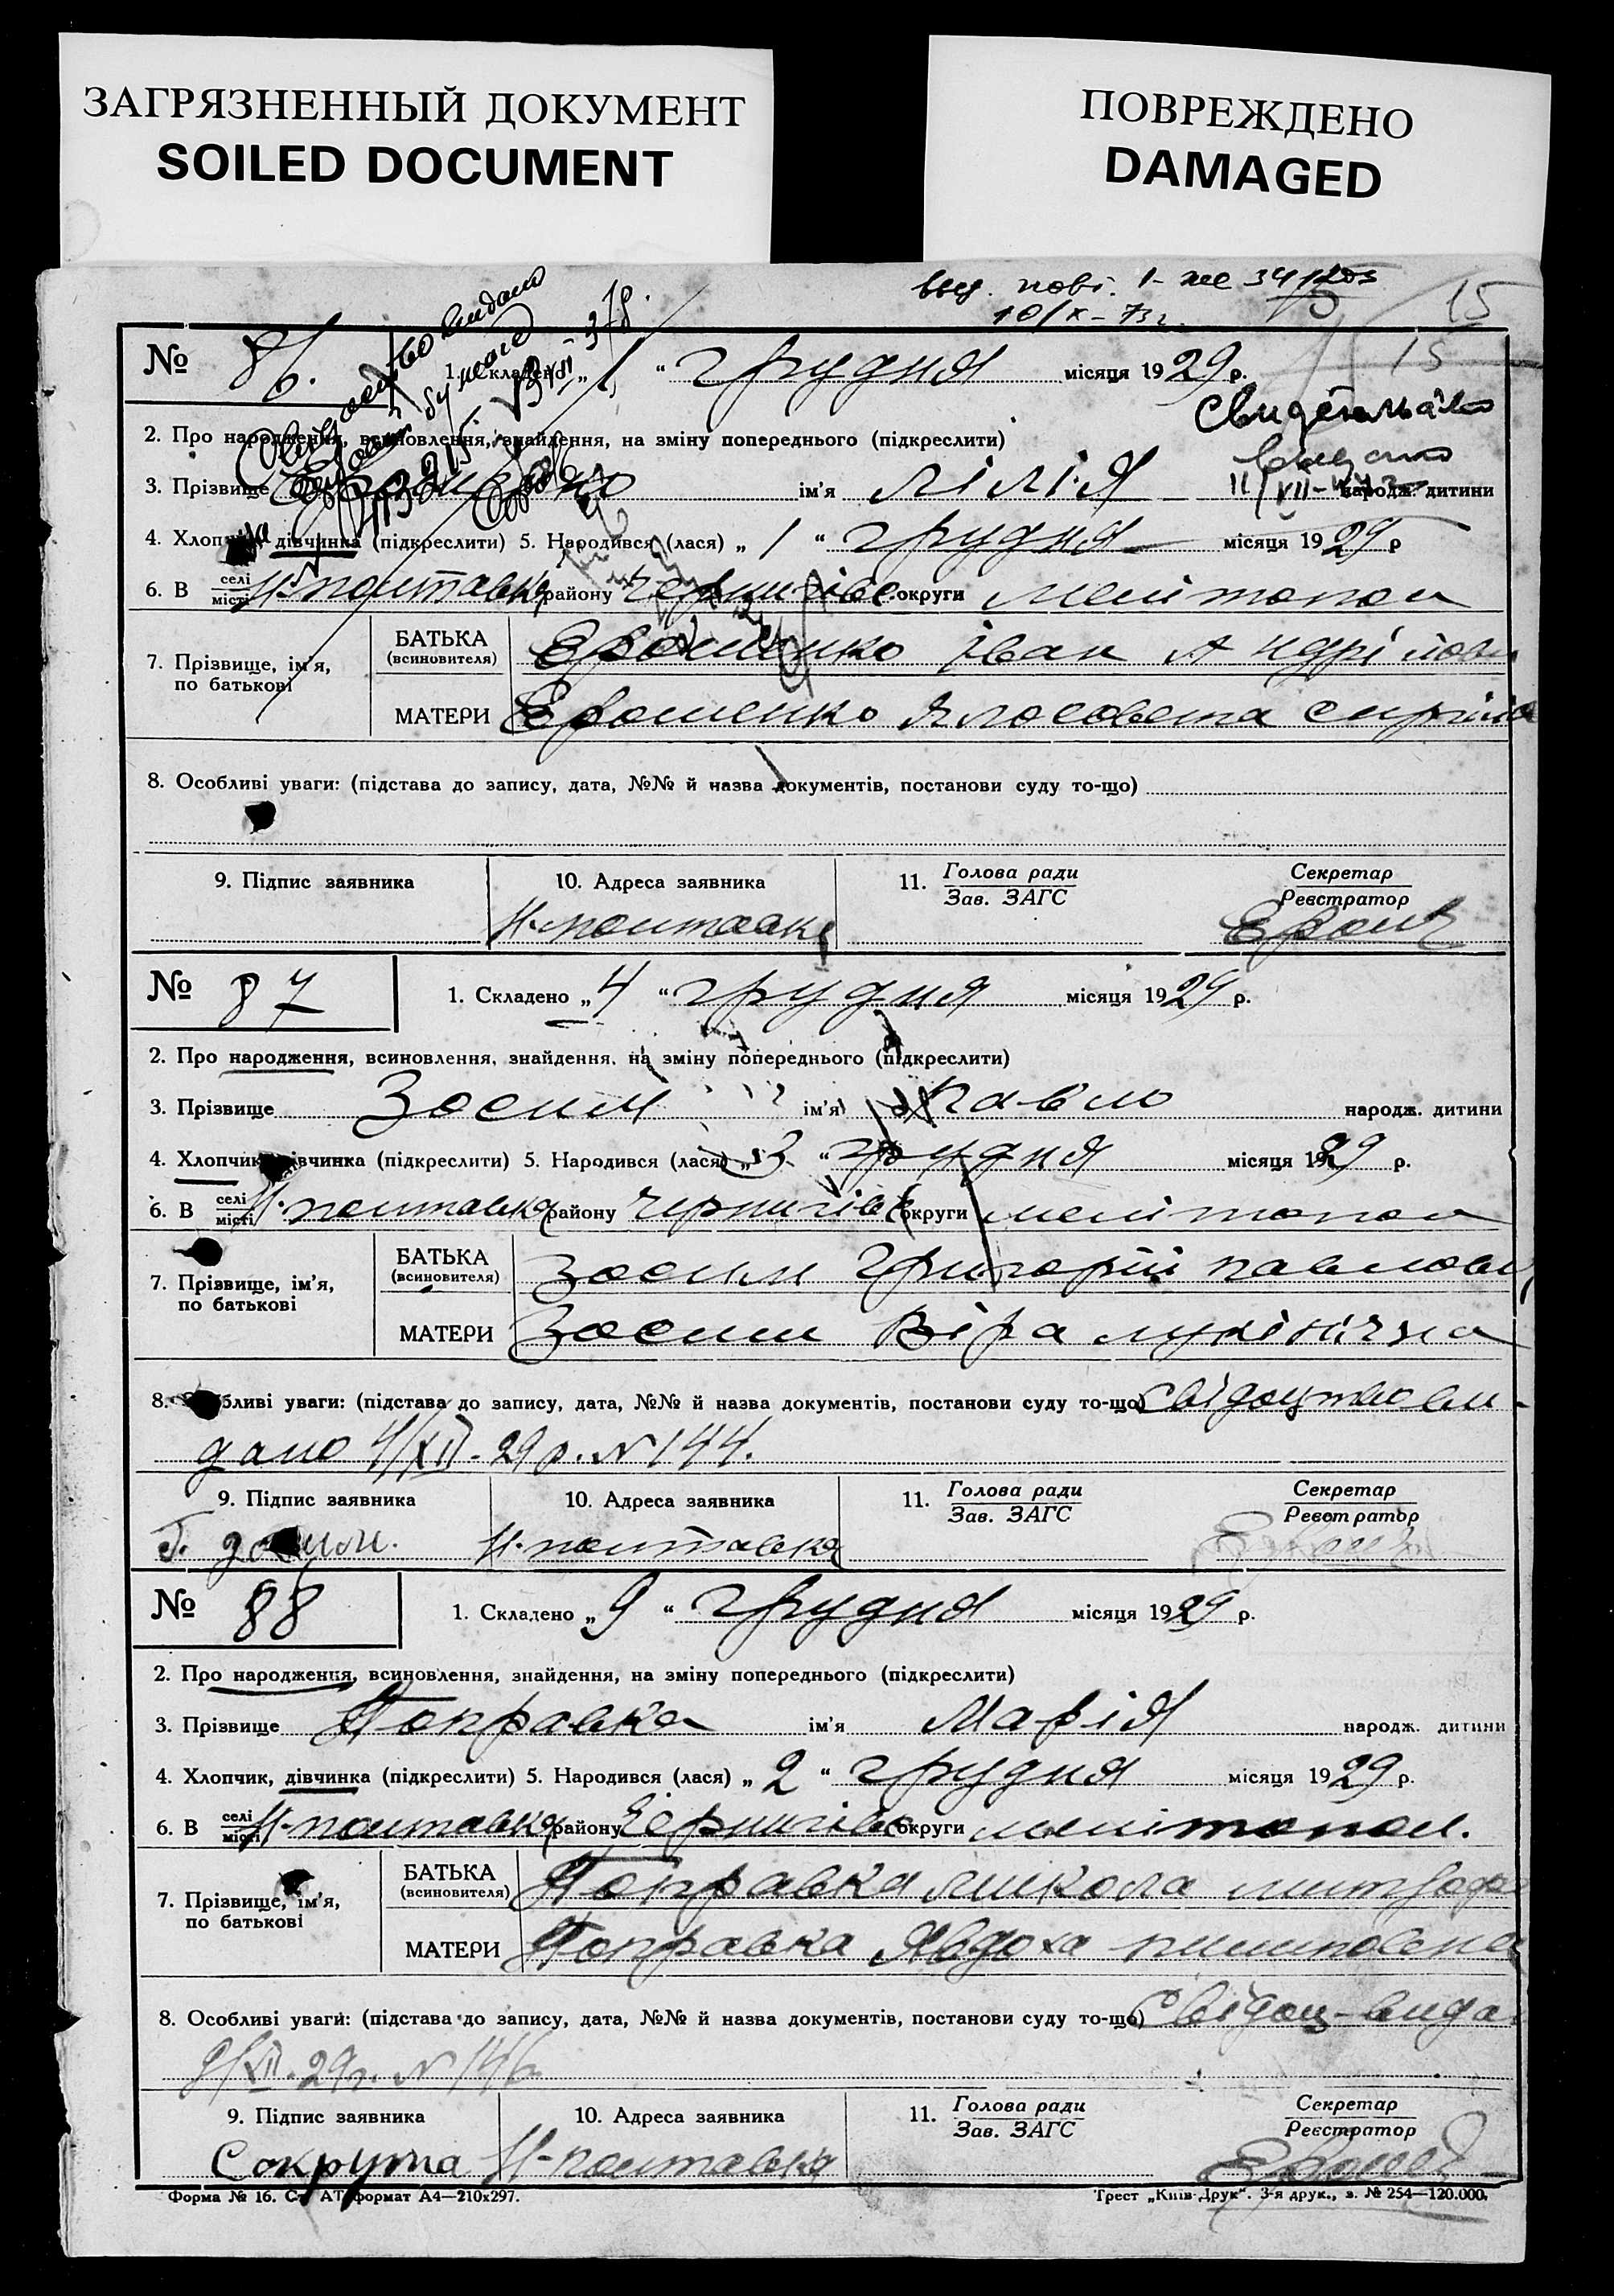 ЗАГРЯЗНЕННЫЙ ДОКУМЕНТ
SOILED DOCUMENT
ПОВРЕЖДЕНО
DAMAGED
10/X-73г.
15
15
№ 86. 1. Складено „1“ грудня місяця 1929 р.
Свидетельство
2. Про народження, всиновлення, знайдення, на зміну попереднього (підкреслити)
3. Прізвище ім'я Лілія народж. дитини
4. Хлопчик, дівчинка (підкреслити) 5. Народився (лася) „1“ грудня місяця 1929 р
6. В селі/місті Н.полтавка району Чернигівс округи мелітопол
7. Прізвище, ім'я, по батькові
БАТЬКА (всиновителя) Ерошенко Іван Андрійови
МАТЕРИ Ерошенко
8. Особливі уваги: (підстава до запису, дата, №№ й назва документів, постанови суду то-що)
9. Підпис заявника 10. Адреса заявника 11. Голова ради/Зав. ЗАГС Секретар/Реєстратор
Н-полтавка Ерош
№ 87 1. Складено „4“ грудня місяця 1929 р.
2. Про народження, всиновлення, знайдення, на зміну попереднього (підкреслити)
3. Прізвище Зосим ім'я Павло народж. дитини
4. Хлопчик, дівчинка (підкреслити) 5. Народився (лася) „3“ грудня місяця 1929 р.
6. В селі/місті Н.полтавка району Чернигівс округи мелітопол
7. Прізвище, ім'я, по батькові
БАТЬКА (всиновителя) Зосим Григорій павлови
МАТЕРИ Зосим Віра
8. Особливі уваги: (підстава до запису, дата, №№ й назва документів, постанови суду то-що) Свідоцтво ви-
дано 4/XII-29 р. N 144.
9. Підпис заявника 10. Адреса заявника 11. Голова ради/Зав. ЗАГС Секретар/Реєстратор
Н.полтавка
№ 88 1. Складено „9“ грудня місяця 1929 р.
2. Про народження, всиновлення, знайдення, на зміну попереднього (підкреслити)
3. Прізвище Поправка ім'я Марія народж. дитини
4. Хлопчик, дівчинка (підкреслити) 5. Народився (лася) „2“ грудня місяця 1929 р.
6. В селі/місті Н.полтавка району Чернигівс округи мелітопол.
7. Прізвище, ім'я, по батькові
БАТЬКА (всиновителя) Поправка микола
МАТЕРИ Поправка Явдоха пилиповна
8. Особливі уваги: (підстава до запису, дата, №№ й назва документів, постанови суду то-що) Свідоц-вида
9/XII-29р. N 146
9. Підпис заявника 10. Адреса заявника 11. Голова ради/Зав. ЗАГС Секретар/Реєстратор
Сокрута Н-полтавка
Форма № 16. Ст. АТ формат А4—210х297. Трест „Київ-Друк“. 3-я друк., з. № 254—120.000.